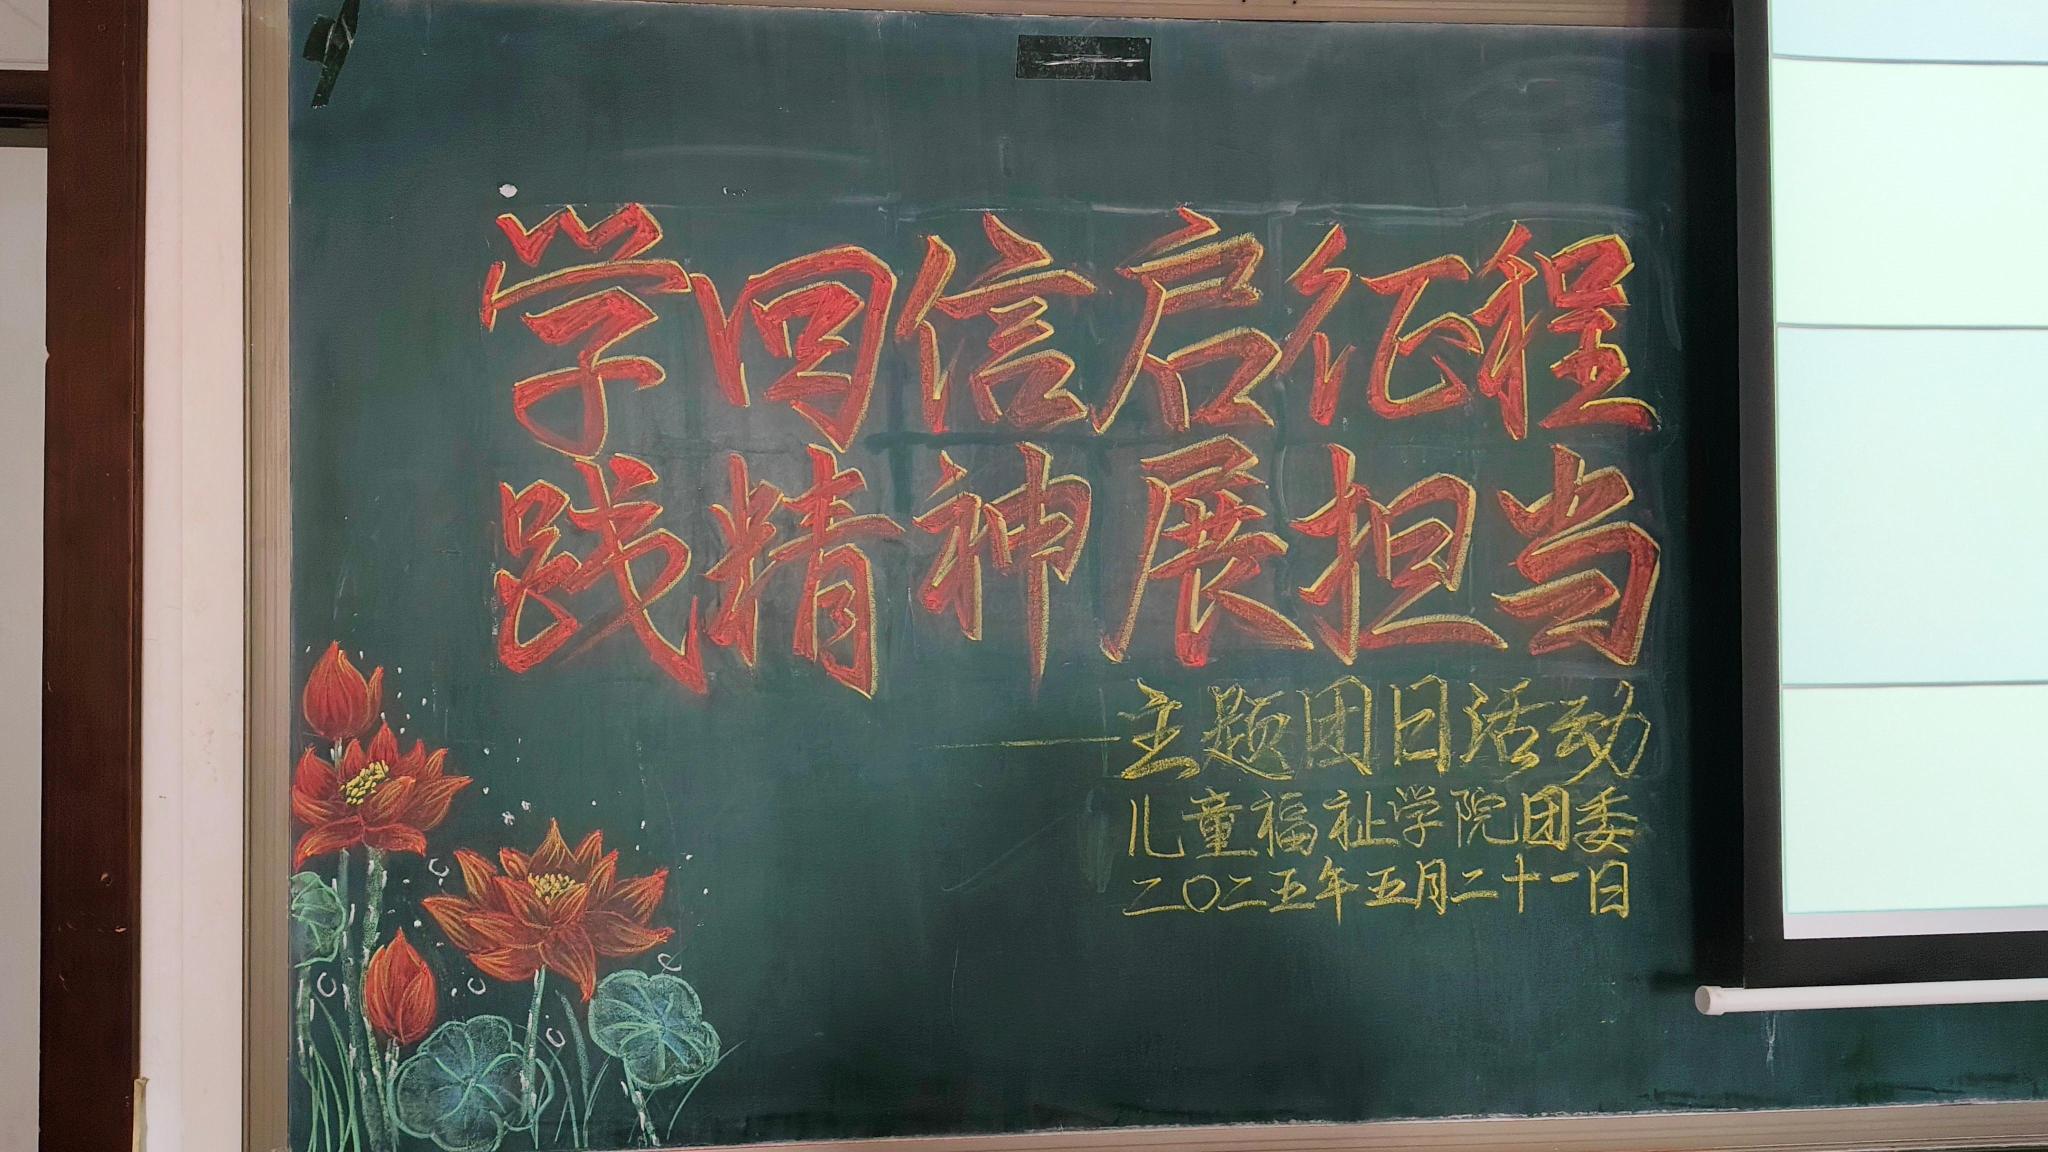 学回信启征程
践精神展担当
——主题团日活动
儿童福祉学院团委
二〇二五年五月二十一日